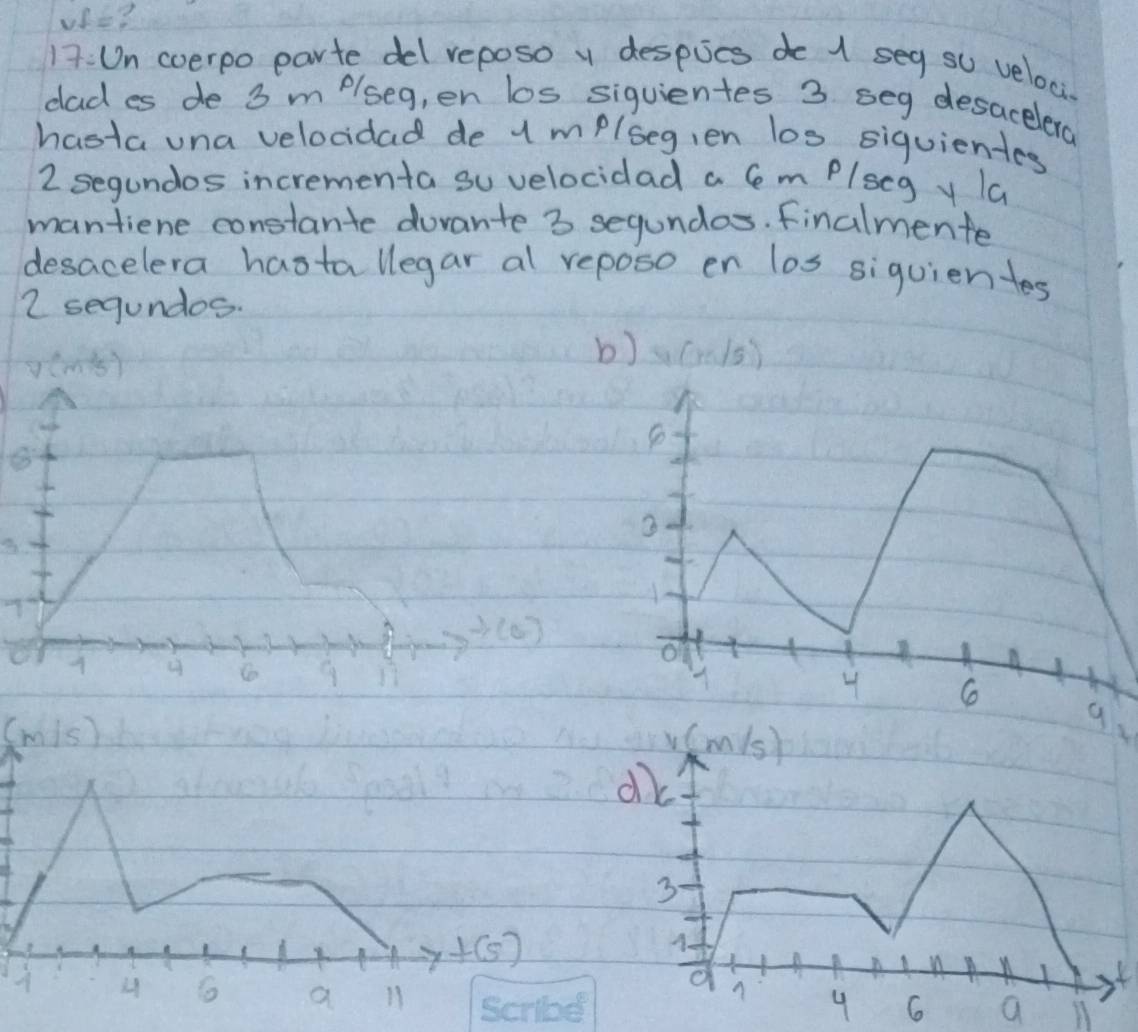 vf=?
17.- Un cuerpo parte del reposo y despúes de 1 seg su veloci-
dad es de 3 m P/seg, en los siguientes 3 seg desacelera
hasta una velocidad de 1 m P/seg, en los siguientes
2 segundos incrementa su velocidad a 6 m P/seg y la
mantiene constante durante 3 segundos. Finalmente
desacelera hasta llegar al reposo en los siguientes
2 segundos.
v(m/s)
6
3
1
0 1 4 6 9 11 t(s)
b) v(m/s)
6
3
1
0 1 4 6 9
(m/s)
1 4 6 9 11 t(s)
d) v(m/s)
6
3
1
0 1 4 6 9 11 t
Scribe